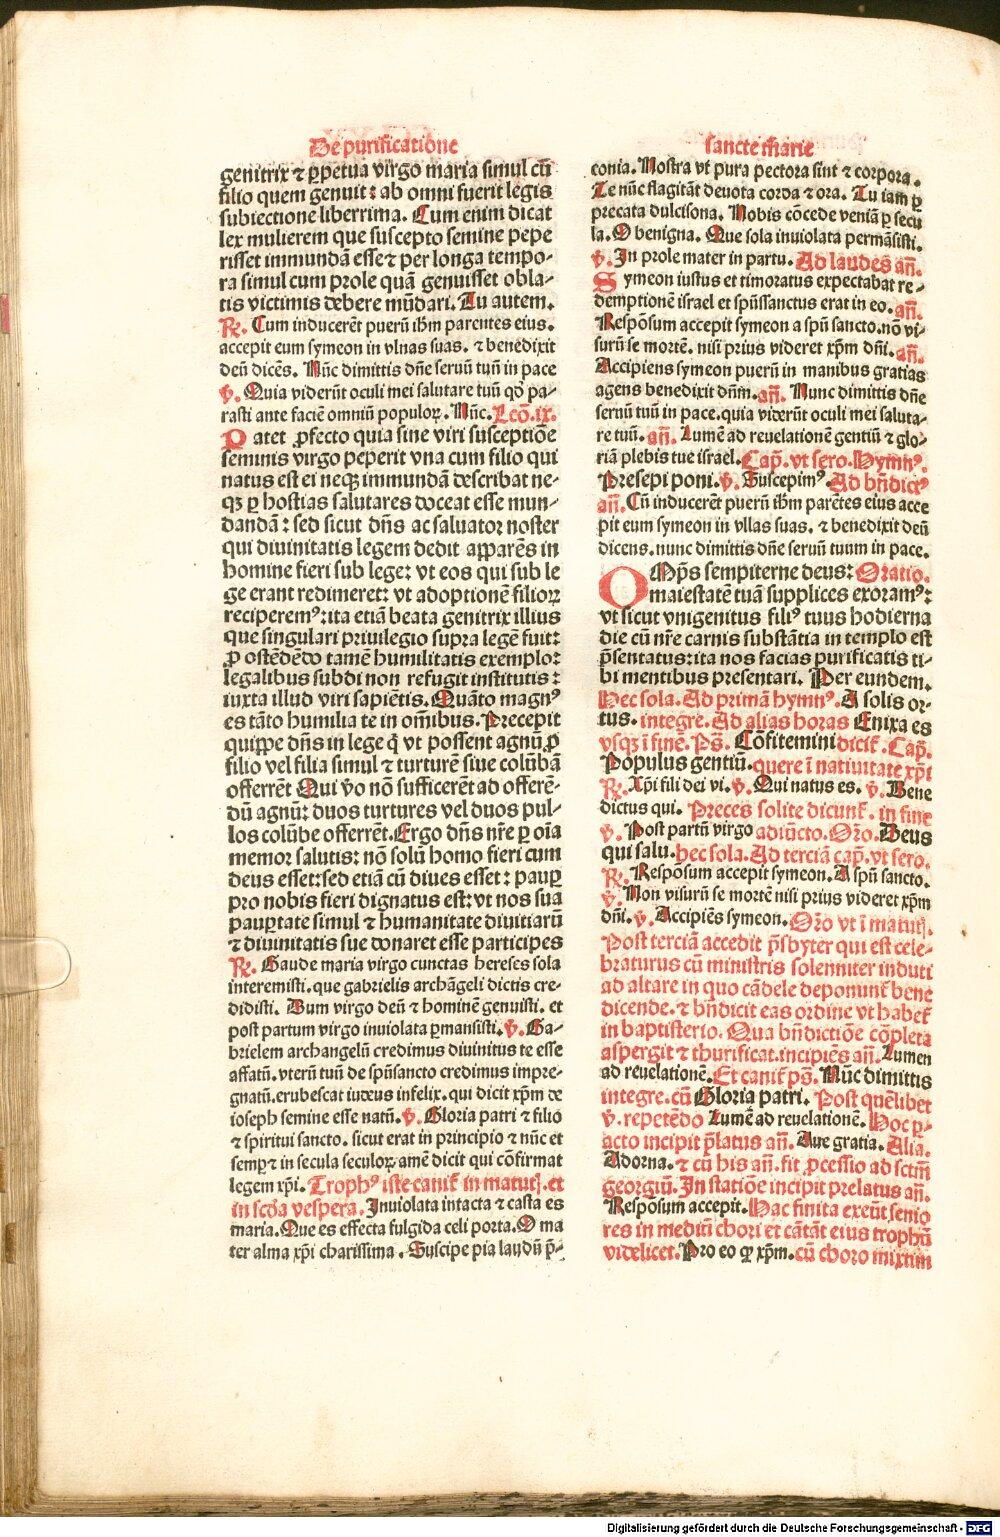 De purificatione
genitrix ⁊ ꝑpetua virgo maria simul cū
filio quem genuit: ab omni fuerit legis
subiectione liberrima. Cum enim dicat
lex mulierem que suscepto semine pepe
risset immundā esse ⁊ per longa tempo-
ra simul cum prole quā genuisset obla-
tis victimis debere mūdari. Tu autem.
℞. Cum inducerēt puerū ihm parentes eius.
accepit eum symeon in vlnas suas. ⁊ benedixit
deū dicēs. Nūc dimittis dn̄e seruū tuū in pace
℣. Quia viderūt oculi mei salutare tuū qd̛ pa-
rasti ante faciē omniū populoꝝ. Nūc. Lcō.ix.
Patet ꝓfecto quia sine viri susceptiōe
seminis virgo peperit vna cum filio qui
natus est ei neqꝫ immundā describat ne-
qꝫ ꝑ hostias salutares doceat esse mun-
dandā: sed sicut dn̄s ac saluator noster
qui diuinitatis legem dedit apparēs in
homine fieri sub lege: vt eos qui sub le
ge erant redimeret: vt adoptionē filioꝝ
reciperemꝰ: ita etiā beata genitrix illius
que singulari priuilegio supra legē fuit:
ꝓ ostēdēdo tamē humilitatis exemplo:
legalibus subdi non refugit institutis:
iuxta illud viri sapiētis. Quāto magnꝰ
es tāto humilia te in om̄ibus. Precepit
quippe dn̄s in lege q̄ vt possent agnū ꝓ
filio vel filia simul ⁊ turturē siue colūbā
offerrēt Qui v̄o nō sufficerēt ad offerē-
dū agnū: duos turtures vel duos pul-
los colūbe offerrēt. Ergo dn̄s nr̄e ꝑ oīa
memor salutis: nō solū homo fieri cum
deus esset: sed etiā cū diues esset: pauꝑ
pro nobis fieri dignatus est: vt nos sua
pauꝑtate simul ⁊ humanitate diuitiarū
⁊ diuinitatis sue donaret esse participes
℞. Gaude maria virgo cunctas hereses sola
interemisti. que gabrielis archāgeli dictis cre-
didisti. Dum virgo deū ⁊ hominē genuisti. et
post partum virgo inuiolata ꝑmansisti. ℣. Ga-
brielem archangelū credimus diuinitus te esse
affatū. vterū tuū de spūsancto credimus impre-
gnatū. erubescat iudeus infelix. qui dicit xp̄m de
ioseph semine esse natū. ℣. Gloria patri ⁊ filio
⁊ spiritui sancto. sicut erat in principio ⁊ nūc et
semꝑ ⁊ in secula seculoꝝ amē dicit qui cōfirmat
legem xp̄i. Trophꝰ iste canit̄ in matutꝭ. et
in scd̄a vespera. Inuiolata intacta ⁊ casta es
maria. Que es effecta fulgida celi porta. O ma
ter alma xp̄i charissima. Suscipe pia laudū p̄-
sancte Marie
conia. Nostra vt pura pectora sint ⁊ corpora.
Te nūc flagitāt deuota corda ⁊ ora. Tu iam ꝑ
precata dulcisona. Nobis cōcede veniā ꝑ secu
la. O benigna. Que sola inuiolata permāsisti.
℣. In prole mater in partu. Ad laudes an̄.
Symeon iustus et timoratus expectabat re-
demptionē israel et spūssanctus erat in eo. an̄.
Respōsum accepit symeon a spū sancto. nō vi-
surū se mortē. nisi prius videret xp̄m dn̄i. an̄.
Accipiens symeon puerū in manibus gratias
agens benedixit dn̄m. an̄. Nunc dimittis dn̄e
seruū tuū in pace. quia viderūt oculi mei saluta-
re tuū. an̄. Lumē ad reuelationē gentiū ⁊ glo-
riā plebis tue israel. Cap̄. vt sero. Hymnꝰ.
Presepi poni. ℣. Suscepimꝰ. Ad bn̄dictꝰ
an̄. Cū inducerēt puerū ihm parētes eius acce
pit eum symeon in vllas suas. ⁊ benedixit deū
dicens. nunc dimittis dn̄e seruū tuum in pace.
OMp̄s sempiterne deus: Oratio.
maiestatē tuā supplices exoramꝰ:
vt sicut vnigenitus filiꝰ tuus hodierna
die cū nr̄e carnis substātia in templo est
p̄sentatus: ita nos facias purificatis ti-
bi mentibus presentari. Per eundem.
Hec sola. Ad primā hymnꝰ. A solis or-
tus. integre. Ad alias horas Enixa es
vsqꝫ ī finē. Ps̄. Cōfitemini dicit̄. Cap̄.
Populus gentiū. quere ī natiuitate xp̄i
℞. Xp̄i fili dei vi. ℣. Qui natus es. ℣. Bene
dictus qui. Preces solite dicunt̄. in fine
℣. Post partū virgo adiūcto. Or̄o. Deus
qui salu. hec sola. Ad terciā cap̄. vt sero.
℞. Respōsum accepit symeon. A spū sancto.
℣. Non visurū se mortē nisi prius videret xp̄m
dn̄i. ℣. Accipiēs symeon. Or̄o vt ī matutꝭ.
Post terciā accedit p̄sbyter qui est cele-
braturus cū ministris solenniter induti
ad altare in quo cādele deponunt̄ bene
dicende. ⁊ bn̄dicit eas ordine vt habet̄
in baptisterio. Qua bn̄dictiōe cōpleta
aspergit ⁊ thurificat. incipiēs an̄. Lumen
ad reuelationē. Et canit̄ ps̄. Nūc dimittis
integre. cū Gloria patri. Post quēlibet
℣. repetēdo Lumē ad reuelationē. Hoc ꝑ-
acto incipit p̄latus an̄. Aue gratia. Alia.
Adorna. ⁊ cū his an̄. fit ꝓcessio ad sctm̄
georgiū. In statiōe incipit prelatus an̄.
Respōsum accepit. Hac finita exeūt senio
res in mediū chori et cātāt eius trophū
videlicet. Pro eo qꝫ xp̄m. cū choro mixtim
Digitalisierung gefördert durch die Deutsche Forschungsgemeinschaft - DFG